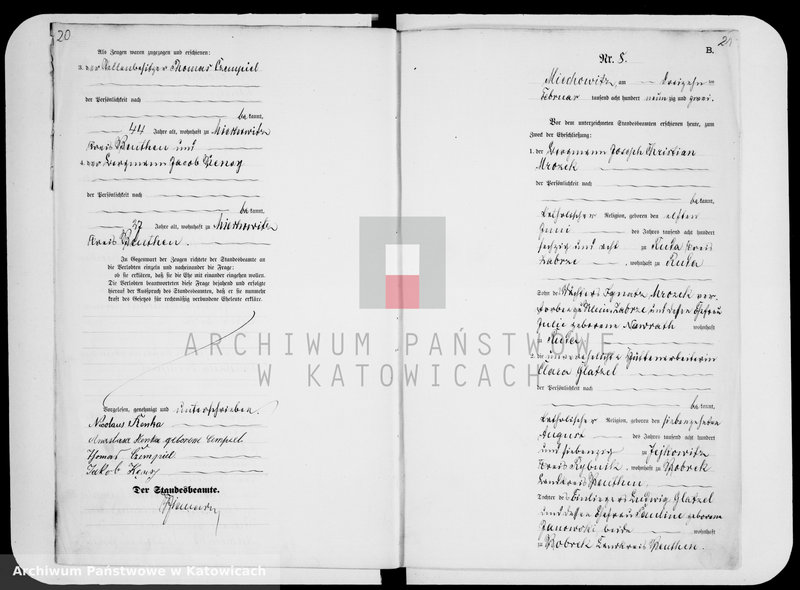 20
Als Zeugen waren zugezogen und erschienen:
3. der Thomas Czempiel
der Persönlichkeit nach
be kannt,
44 Jahre alt, wohnhaft zu Miechowitz
Kreis Beuthen und
4. der Bergmann Jacob
der Persönlichkeit nach
be kannt,
37 Jahre alt, wohnhaft zu Miechowitz
Kreis Beuthen.
In Gegenwart der Zeugen richtete der Standesbeamte an
die Verlobten einzeln und nacheinander die Frage:
ob sie erklären, daß sie die Ehe mit einander eingehen wollen.
Die Verlobten beantworteten diese Frage bejahend und erfolgte
hierauf der Ausspruch des Standesbeamten, daß er sie nunmehr
kraft des Gesetzes für rechtmäßig verbundene Eheleute erkläre.
Vorgelesen, genehmigt und unterschrieben.
Nicolaus Konka
Konka geborene Czempiel
Thomas Czempiel
Jakob
Der Standesbeamte.
21
B.
Nr. 8.
Miechowitz am dreizehn ten
Februar tausend acht hundert neunzig und zwei.
Vor dem unterzeichneten Standesbeamten erschienen heute, zum
Zweck der Eheschließung:
1. der Bergmann Joseph Christian
Mrozek
der Persönlichkeit nach
be kannt,
katholischer Religion, geboren den elften
Juni des Jahres tausend acht hundert
sechzig und acht zu Ruda Kreis
Zabrze, wohnhaft zu Ruda
Sohn des Ignatz Mrozek ver-
storben zu Klein Zabrze und dessen Ehefrau
Julie geborene Nawrath wohnhaft
zu Ruda
2. die unverehelichte Hüttenarbeiterin
Clara Glatzel
der Persönlichkeit nach
be kannt,
katholischer Religion, geboren den siebenzehnten
August des Jahres tausend acht hundert
und siebenzig zu Jejkowitz
Kreis Rybnik, wohnhaft zu Bobrek
Landkreis Beuthen
Tochter des Einliegers Ludwig Glatzel
und dessen Ehefrau Pauline geborene
Janowski beide wohnhaft
zu Bobrek Landkreis Beuthen.
ARCHIWUM PAŃSTWOWE
W KATOWICACH
Archiwum Państwowe w Katowicach